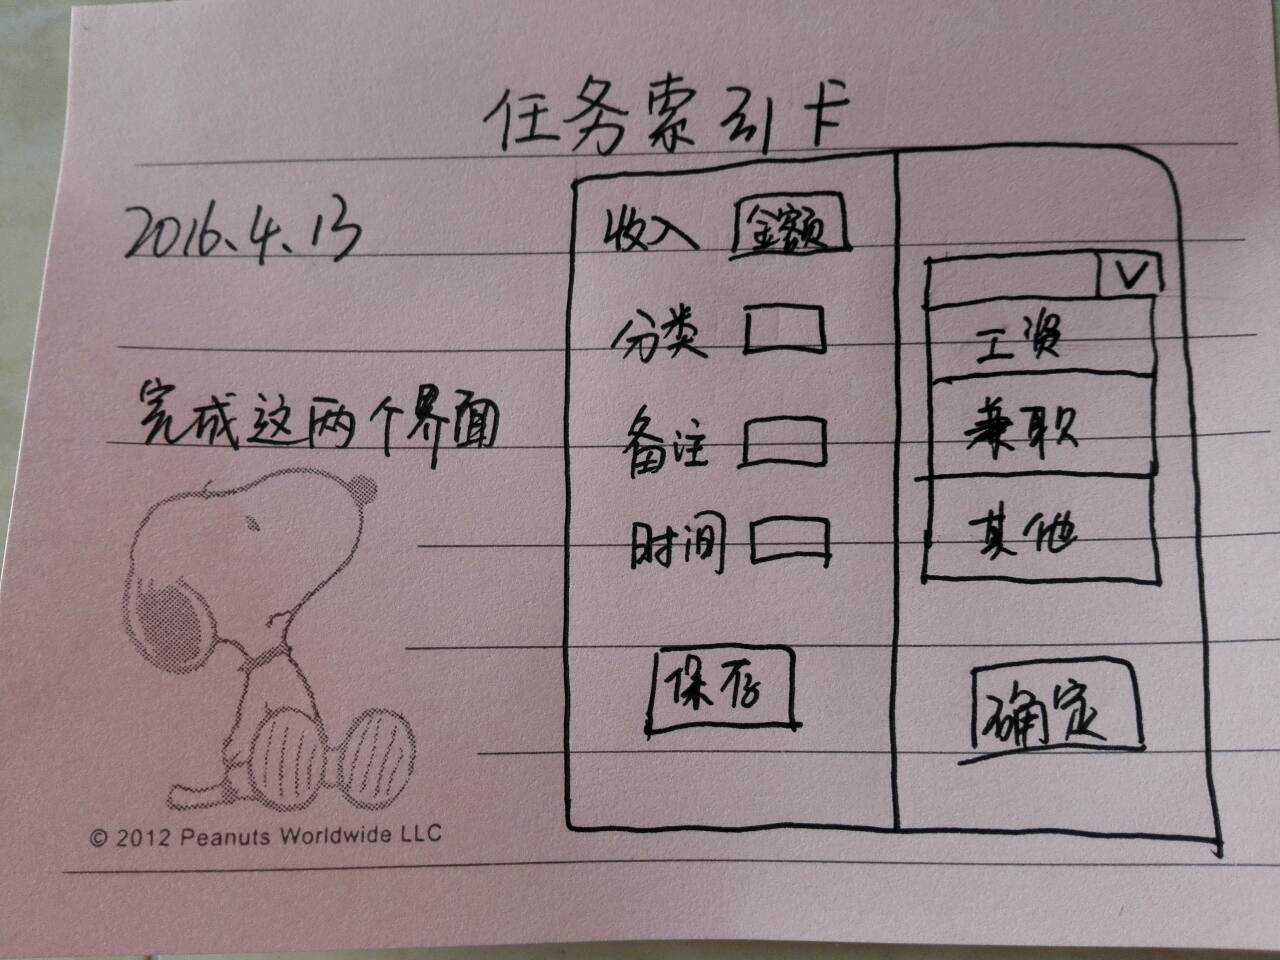 任务索引卡
2016.4.13
完成这两个界面
收入 金额
分类
备注
时间
保存
工资
兼职
其他
确定
© 2012 Peanuts Worldwide LLC